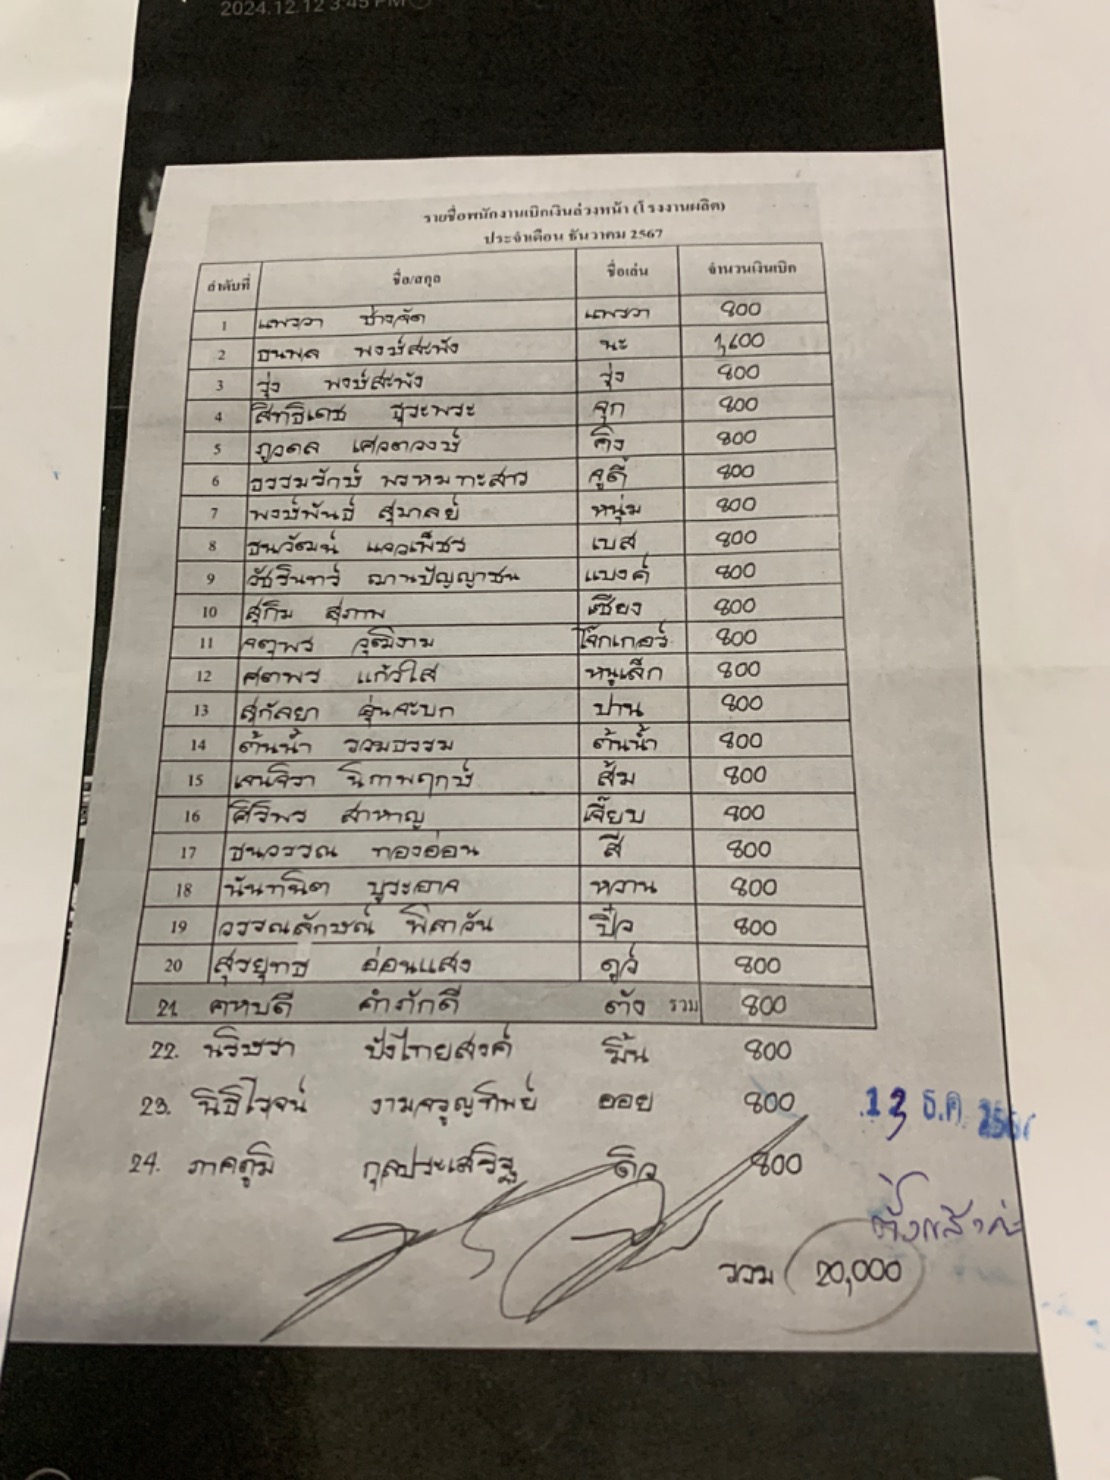 2024.12.12 3:45 PM
รายชื่อพนักงานเบิกเงินล่วงหน้า (โรงงานผลิต)
ประจำเดือน ธันวาคม 2567
ลำดับที่ ชื่อ/สกุล ชื่อเล่น จำนวนเงินเบิก
1 แพรวา ช่างจัด แพรวา 800
2 ธนพล พงษ์สะพัง นะ 1,600
3 รุ่ง พงษ์สะพัง รุ่ง 800
4 สิทธิเดช ธุระพระ จุก 800
5 ภูวดล เศวตวงษ์ คิง 800
6 ธรรมรักษ์ พรหมทะสาร จูดี้ 800
7 พงษ์พันธ์ สุมาลย์ หนุ่ม 800
8 ธนวัฒน์ แววเพ็ชร เบส 800
9 วัชรินทร์ ฌานปัญญาชน แบงค์ 800
10 สุกิม สุภาพ เซียง 800
11 จตุพร วุฒิงาม โจ๊กเกอร์ 800
12 ศตพร แก้วใส หนูเล็ก 800
13 สุกัลยา อุ่นจะบก ปาน 800
14 ต้นน้ำ รวมธรรม ต้นน้ำ 800
15 เจนจิรา นิภาพฤกษ์ ส้ม 800
16 ศิริพร สาหาญ เจี๊ยบ 800
17 ธนวรรณ ทองอ่อน สี 800
18 นันทนิต บูระอาจ หวาน 800
19 วรรณลักษณ์ พิลาวัน ปิ๋ว 800
20 สุรยุทธ อ่อนแสง ดูว์ 800
21. คหบดี คำภักดี ตัง รวม 800
22. นริษรา ปังไทยสงค์ มิ้น 800
23. นิธิโรจน์ งามจรูญทิพย์ ออย 800
13 ธ.ค. 2567
24. ภาคภูมิ กุลประเสริฐ ดิว 800
ตั้งแล้วค่ะ
รวม 20,000